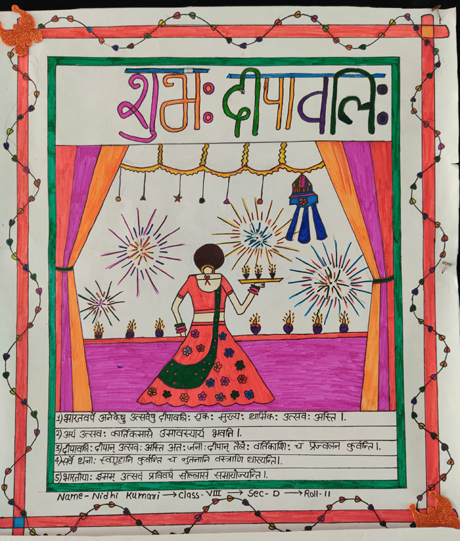 शुभः दीपावलिः
1) भारतवर्षे अनेकेषु उत्सवेषु दीपावलिः एकः मुख्यः धार्मिकः उत्सवः अस्ति ।
2) अयं उत्सवः कार्तिकमासे अमावस्यायां भवति ।
3) दीपावलिः दीपानां उत्सवः अस्ति अतः जनाः दीपान् तैलैः वर्तिकाभिः च प्रज्वलनं कुर्वन्ति ।
4) सर्वे जनाः स्वगृहाणि कुर्वन्ति च नूतनानि वस्त्राणि धारयन्ति ।
5) भारतीयाः इमम् उत्सवं प्रतिवर्षं सोल्लासं समायोज्यन्ति ।
Name- Nidhi Kumari → Class- VIII → Sec- D → Roll- 11